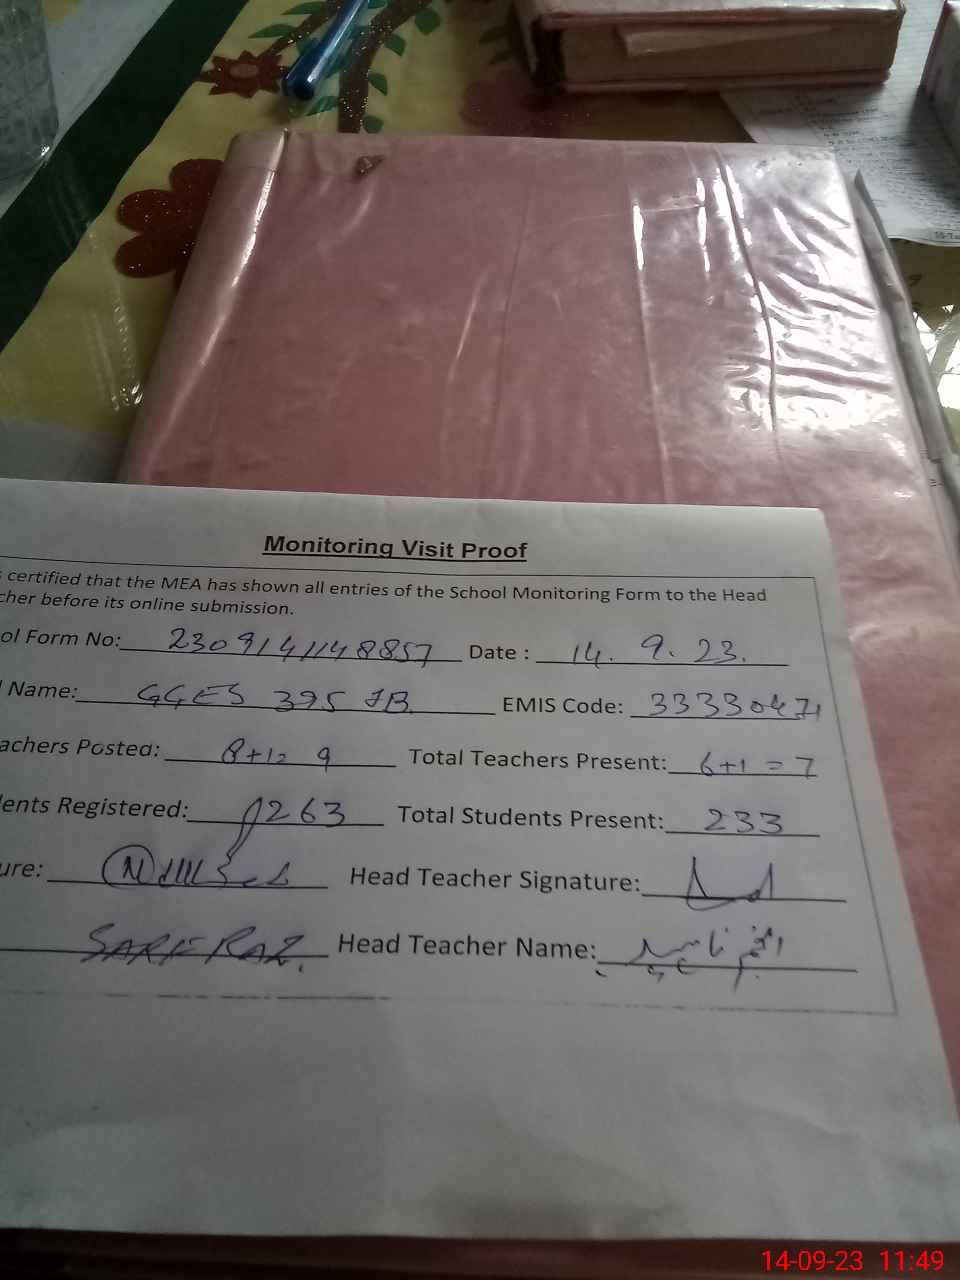 Monitoring Visit Proof
certified that the MEA has shown all entries of the School Monitoring Form to the Head
cher before its online submission.
ol Form No: 2309141148857 Date : 14. 9. 23.
Name: GGES 395 JB EMIS Code: 33330471
achers Posted: 8+1= 9 Total Teachers Present: 6+1 = 7
dents Registered: 263 Total Students Present: 233
ure: Head Teacher Signature:
SARFRAZ. Head Teacher Name:
14-09-23 11:49